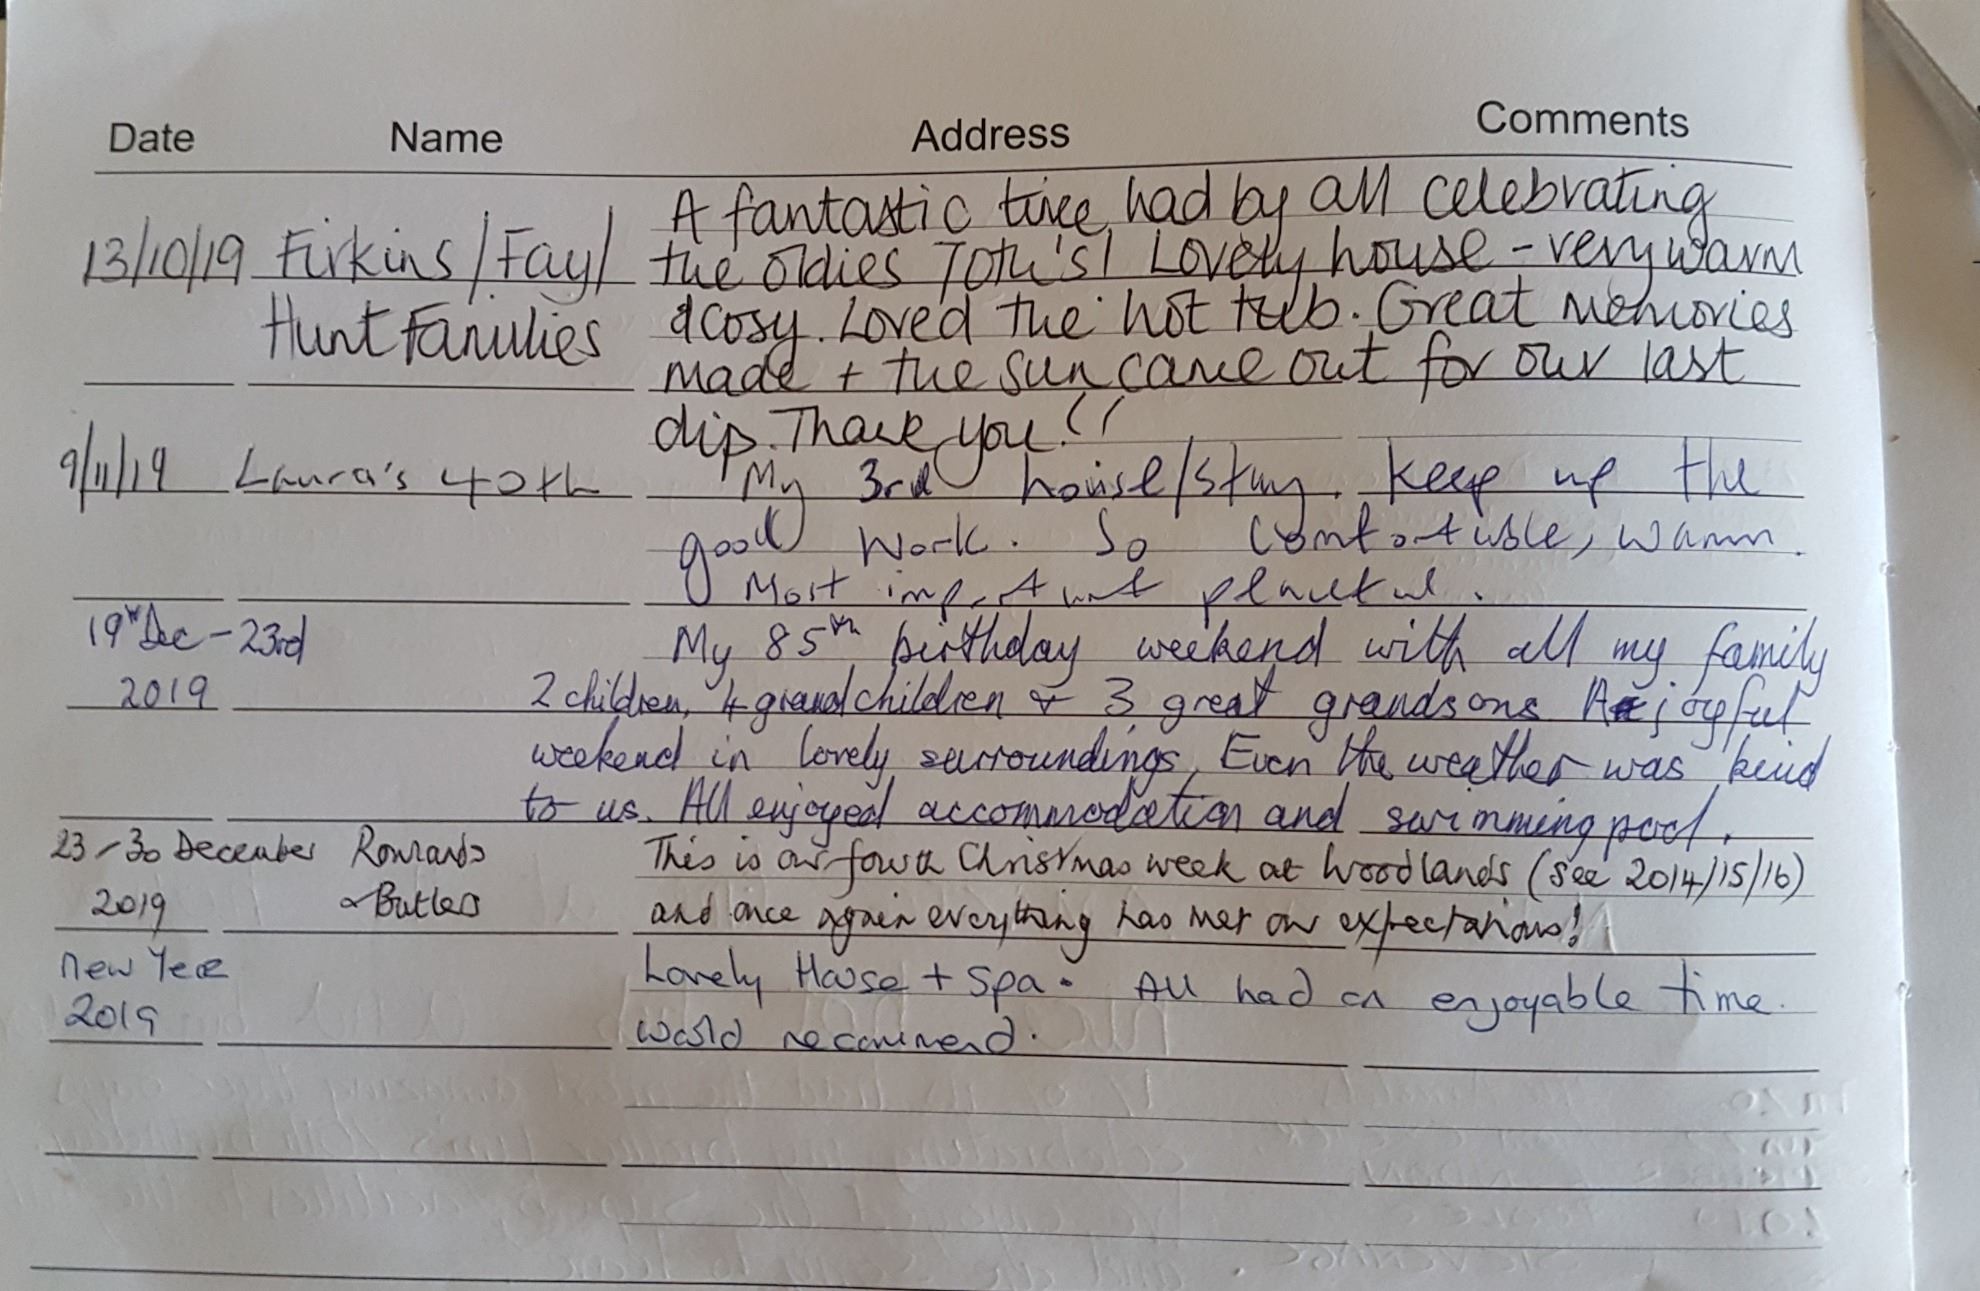 Date Name Address Comments
13/10/19 Firkins/Fay/ A fantastic time had by all celebrating
the oldies 70th's! Lovely house - very warm
Hunt Families & cosy. Loved the hot tub. Great memories
made + the sun came out for our last
dip. Thank you!!
9/11/19 Laura's 40th My 3rd house/stay. Keep up the
good work. So comfortable, warm.
Most important peaceful.
19th Dec - 23rd My 85th birthday weekend with all my family
2019 2 children, 4 grandchildren & 3 great grandsons A joyful
weekend in lovely surroundings, Even the weather was kind
to us. All enjoyed accommodation and swimming pool.
23 - 30 December Rowlands This is our fourth Christmas week at Woodlands (see 2014/15/16)
2019 & Butlers and once again everything has met our expectations!
New Year Lovely House + Spa. All had an enjoyable time.
2019 would recommend.